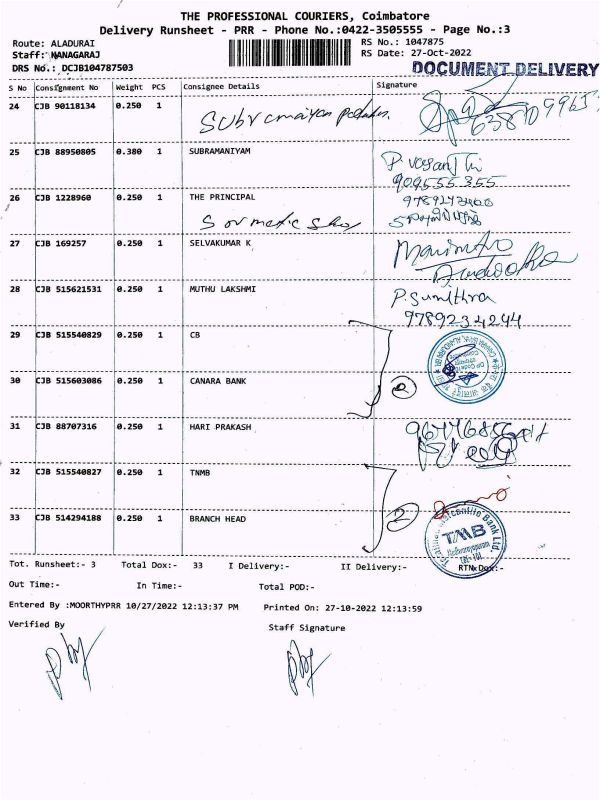 THE PROFESSIONAL COURIERS, Coimbatore
Delivery Runsheet - PRR - Phone No.:0422-3505555 - Page No.:3
Route: ALADURAI
RS No.: 1047875
Staff: NANAGARAJ
RS Date: 27-Oct-2022
DRS No.: DCJB104787503
DOCUMENT DELIVERY
S No Consignment No Weight PCS Consignee Details Signature
24 CJB 90118134 0.250 1
25 CJB 88950805 0.380 1 SUBRAMANIYAM
P. Vasanthi
909555355
26 CJB 1228960 0.250 1 THE PRINCIPAL
27 CJB 169257 0.250 1 SELVAKUMAR K
28 CJB 515621531 0.250 1 MUTHU LAKSHMI
P. Sumithra
9789234244
29 CJB 515540829 0.250 1 CB
30 CJB 515603086 0.250 1 CANARA BANK
2
31 CJB 88707316 0.250 1 HARI PRAKASH
32 CJB 515540827 0.250 1 TNMB
33 CJB 514294188 0.250 1 BRANCH HEAD
2
Mercantile Bank Ltd.
TMB
Tot. Runsheet:- 3 Total Dox:- 33 I Delivery:- II Delivery:- RTN Dox:-
Out Time:- In Time:- Total POD:-
Entered By :MOORTHYPRR 10/27/2022 12:13:37 PM Printed On: 27-10-2022 12:13:59
Verified By Staff Signature